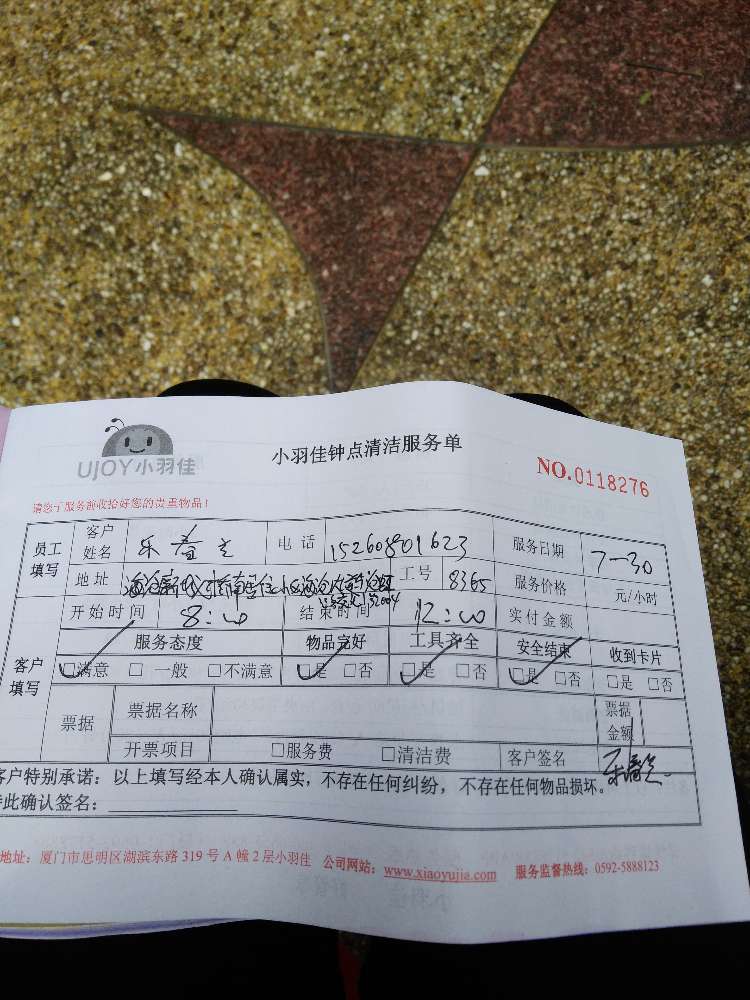 UJOY小羽佳
小羽佳钟点清洁服务单
NO.0118276
请您于服务前收拾好您的贵重物品！
员工填写 客户姓名 乐 电话 15260801623 服务日期 7-30
地址 工号 8365 服务价格 元/小时
开始时间 8:00 结束时间 12:00 实付金额
客户填写 服务态度 物品完好 工具齐全 安全结束 收到卡片
□满意 □一般 □不满意 □是 □否 □是 □否 □是 □否 □是 □否
票据 票据名称 票据金额
开票项目 □服务费 □清洁费 客户签名
客户特别承诺：以上填写经本人确认属实，不存在任何纠纷，不存在任何物品损坏。
特此确认签名：
地址：厦门市思明区湖滨东路319号A幢2层小羽佳 公司网站：www.xiaoyujia.com 服务监督热线：0592-5888123